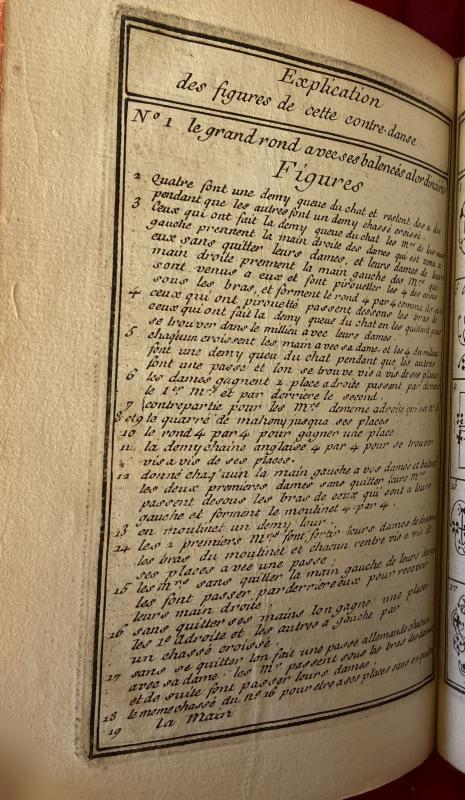 Explication
des figures de cette contre-danse
N° 1 le grand rond avec ses balencés alordinaire
Figures
2 Quatre font une demy queue du chat et restent dos a dos
pendant que les autres font un demy chassé croisét
3 Ceux qui ont fait la demy queue du chat les Mrs de leur main
gauche prennent la main droite des dames qui est vis a
eux sans quitter leurs dames, et leurs dames de leur
main droite prennent la main gauche des Mrs qui
sont venus a eux et font pirouetter les 4 de
sous les bras, et forment le rond 4 par 4 comme
4 ceux qui ont pirouetté passent dessous les bras de
ceux qui ont fait la demy queue du chat en les quittant pour
se trouver dans le millieu avec leurs dames
5 chaqu'un croissent les main avec sa dame et les 4 du milieu
font une demy queu du chat pendant que les autres
font une passe et lon se trouve vis a vis de ses places
6 les dames gagnent 1 place adroite passent par devant
le 1er mrs et par derriere le second.
7 contrepartie pour les Mrs deneme adroite qui
8 et 9 le quarré de mahony jusqua ses places
10 le rond 4 par 4 pour gagner une place
11 la demychaine anglaise 4 par 4 pour se trouver
vis a vis de ses places.
12 donné chaq'un la main gauche a vos dames et balencé
les deux premieres dames sans quitter leurs Mrs
passent desous les bras de ceux qui sont a leurs
gauche et forment le moulinet 4 par 4.
13 en moulinet un demy tour.
14 les 2 premiers Mrs font sortir leurs dames de dessous
les bras du moulinet et chacun rentre vis a vis de
ses places avec une passe
15 les mrs sans quitter la main gauche de leurs dames
les font passer par derriere eux pour recevoir
leurs main droite
16 sans quitter ses mains lon gagne une place
les 1er adroite et les autres a gauche par
un chassé croissé
17 sans se quitter lon fait une passe allemande chacun
avec sa dame. les Mrs passent sous les bras des dames
et de suite font passer leurs dames.
18 le meme chassé du n° 16 pour etre a ses places sans se quitter
19 la Main